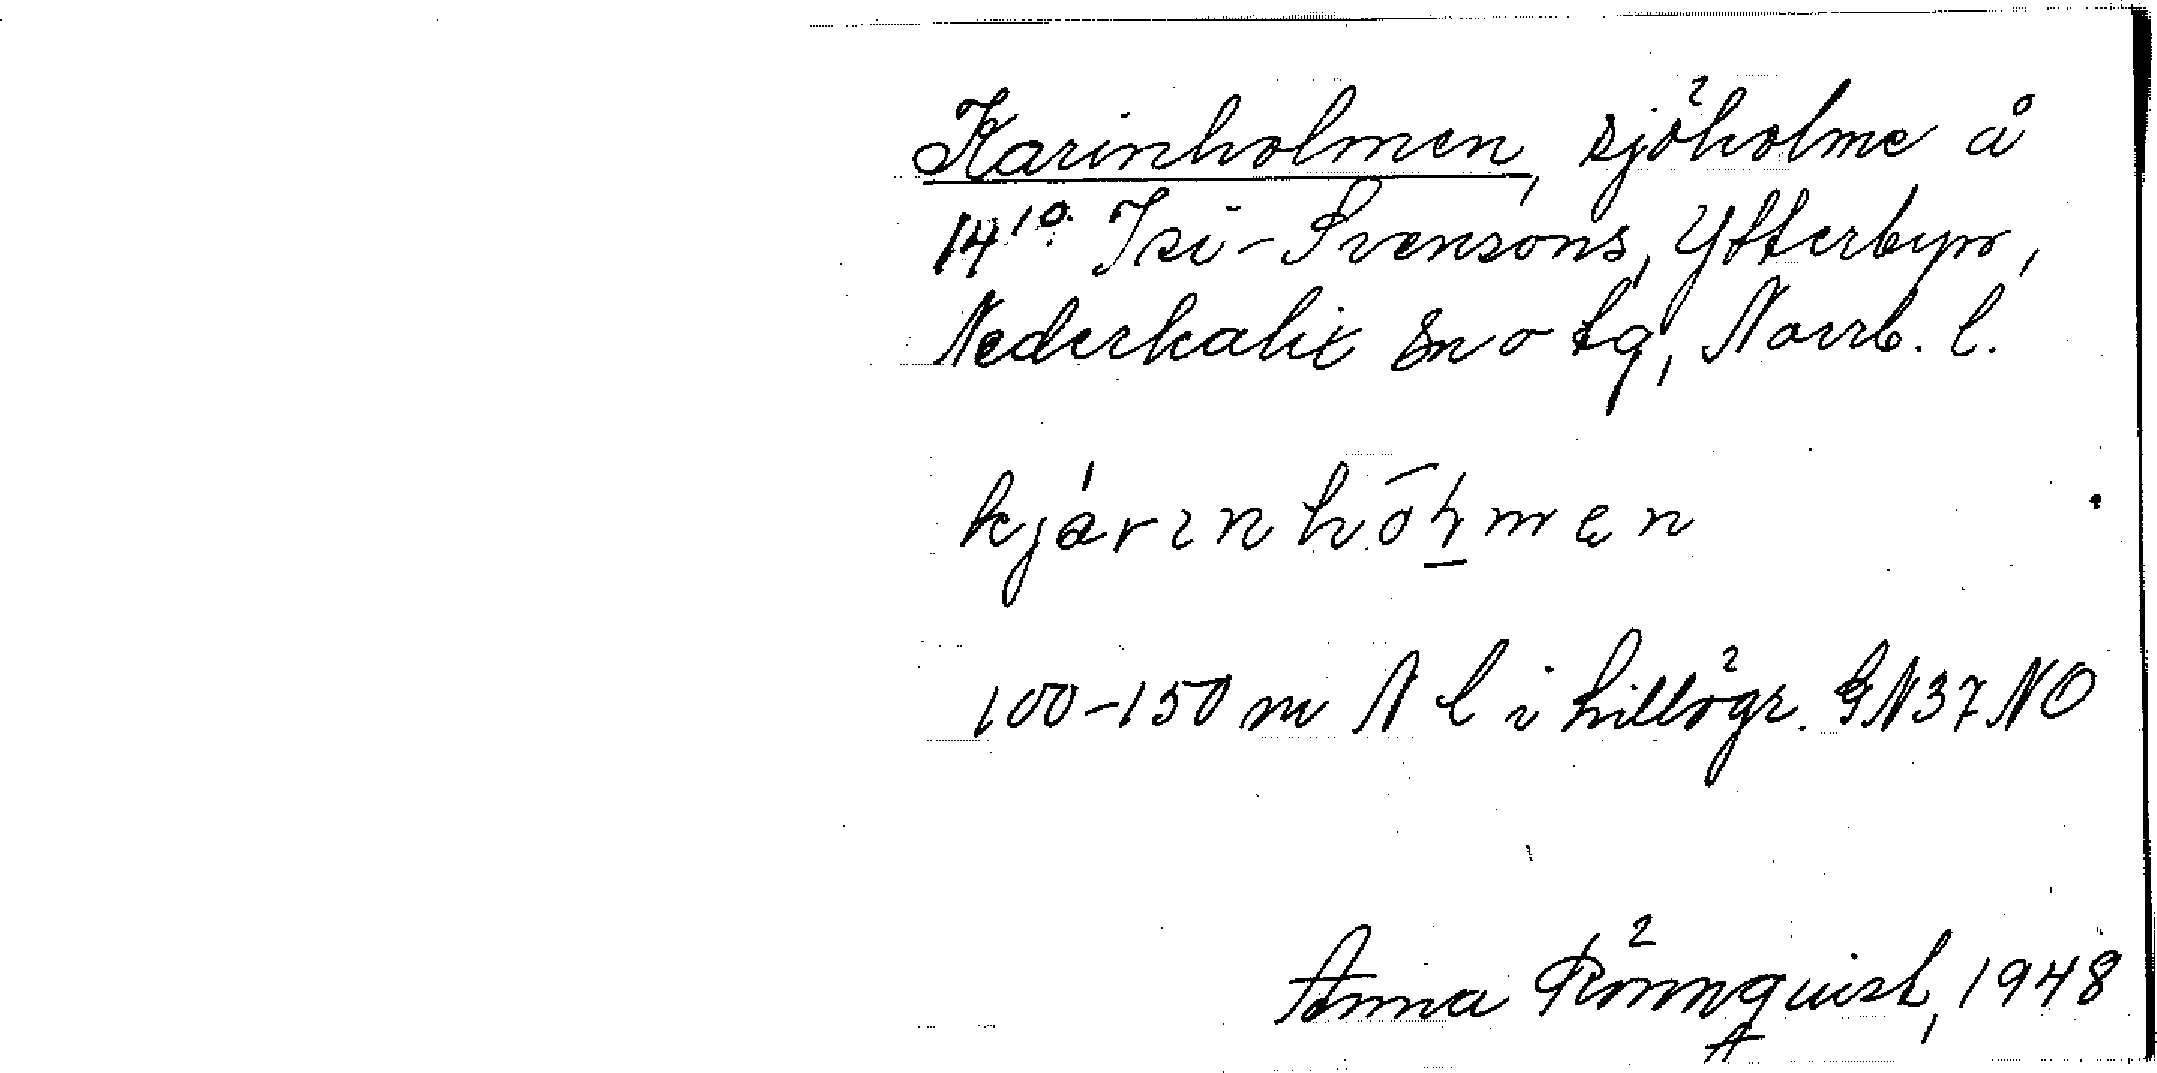 Karinholmen, sjöholme å
14¹⁰ Isi-Svensons, Ytterbyn,
Nederkalix sn o tg, Norrb. l.
kjárinhōḥmen
100-150 m N l i hillögr. GN37NO
Anna Rönnquist, 1948